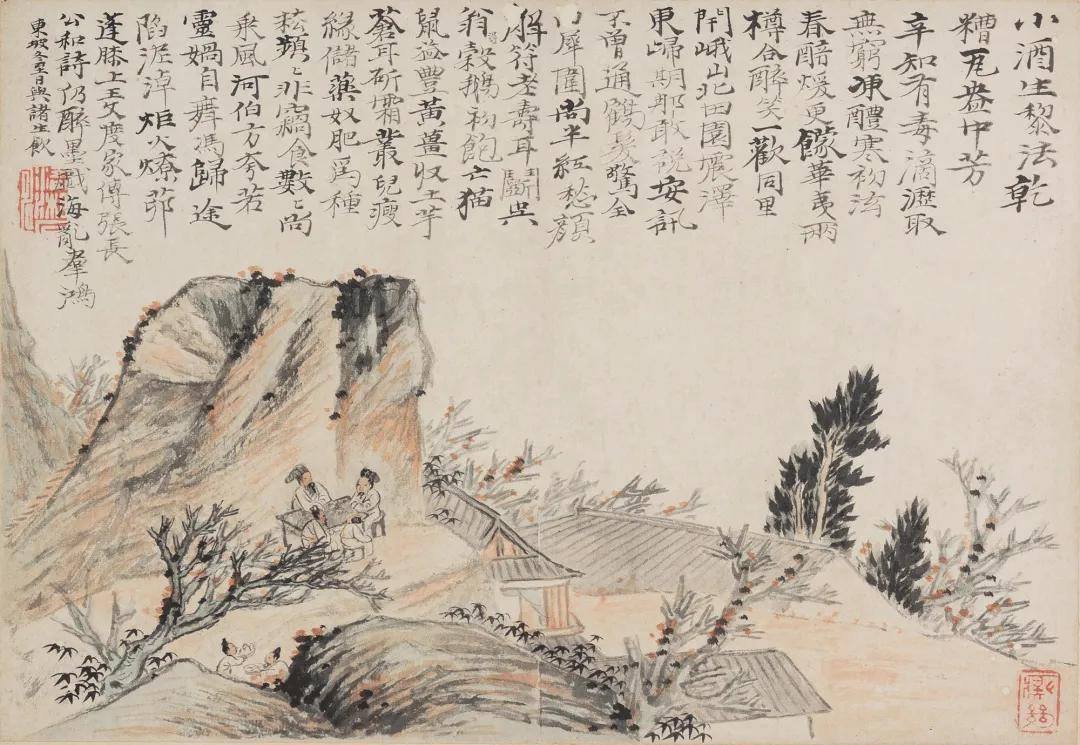 小酒生黎法乾
糟瓦盎中芳
辛知有毒滴瀝取
無窮凍醴寒初泫
春醅煖更饛華夷兩
樽合醉笑一歡同里
閈峨山北田園震澤
東歸期那敢說安訊
不曾通鶴髮驚全
白犀圍尚半紅愁顏
解符老壽耳鬭吳
翁得穀鵝初飽亡猫
鼠益豐黃薑収土芋
蒼耳斫霜叢兒瘦
緣儲藥奴肥爲種
菘頻〻非竊食數〻尚
乘風河伯方夸若
靈媧自舞馮歸途
陷泥淖炬火燎茆
蓬膝上王文度家傳張長
公和詩仍醉墨戲海亂羣鴻
東坡冬至日與諸生飲